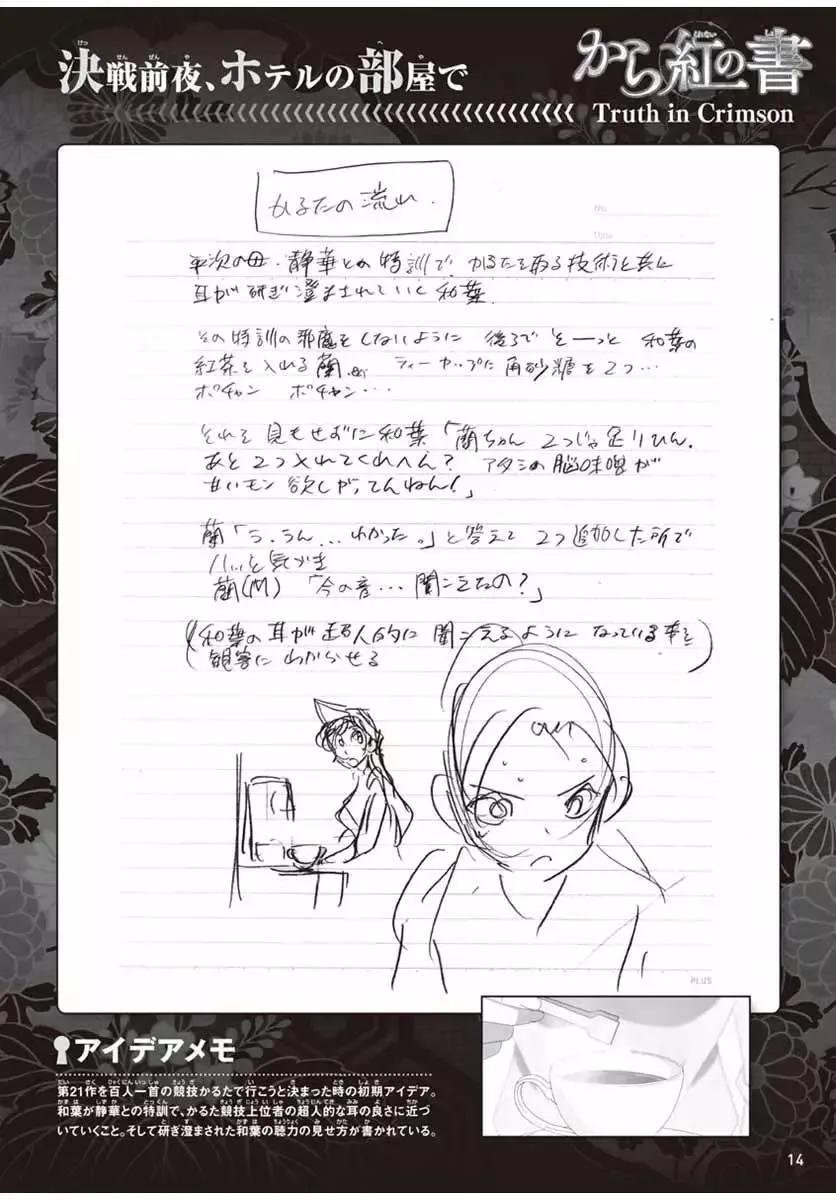 決戦前夜、ホテルの部屋で
から紅の書
Truth in Crimson
かるたの流れ
No.
Date
平次の母・静華との特訓で かるたを取る技術と共に
耳が研ぎ澄まされていく和葉.
その特訓の邪魔をしないように 後ろで そーっと 和葉の
紅茶を入れる蘭. ティーカップに 角砂糖を2つ…
ポチャン ポチャン…
それを見もせずに和葉「蘭ちゃん 2つじゃ足りひん.
あと2つ入れてくれへん? アタシの脳味噌が
甘いモン 欲しがってんねん!」
蘭「う、うん… わかった。」と答えて 2つ追加した所で
ハッと気づき
蘭(M)「今の音… 聞こえたの?」
(和葉の耳が超人的に 聞こえるように なっている事を
観客に わからせる)
PLUS
アイデアメモ
第21作を百人一首の競技かるたで行こうと決まった時の初期アイデア。
和葉が静華との特訓で、かるた競技上位者の超人的な耳の良さに近づ
いていくこと。そして研ぎ澄まされた和葉の聴力の見せ方が書かれている。
14